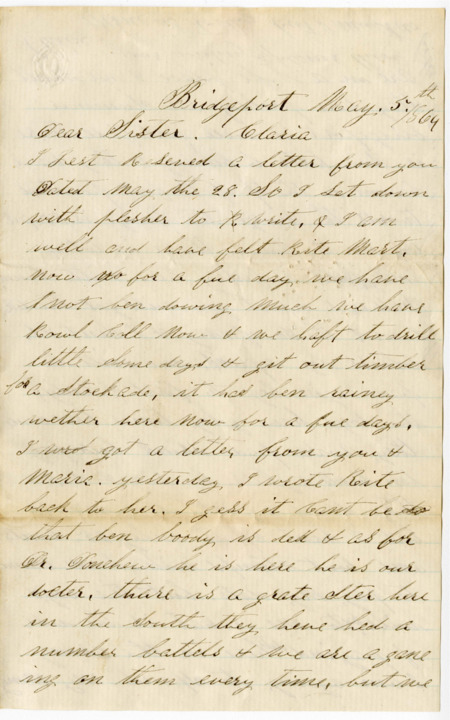 Bridgeport May. 5th / 1864
Dear Sister. Claria
I Jest Reseved a letter from you
Dated May the 28. So I set down
with plesher to R write, & I am
well and have felt Rite Mart.
now for a fue day, we have
not ben dowing much we have
Rowl Coll now & we haft to drill
little some days & git out timber
for a Stockade, it has ben rainey
wether here now for a fue days.
I got a letter from you &
Maria. yesterday I wrote Rite
back to her. I gess it Cant be
that ben boody is ded & as for
Dr. he is here he is our
docter. thare is a grate Ster here
in the South they heve hed a
number battels & we are a gane
ing on them every time, but we